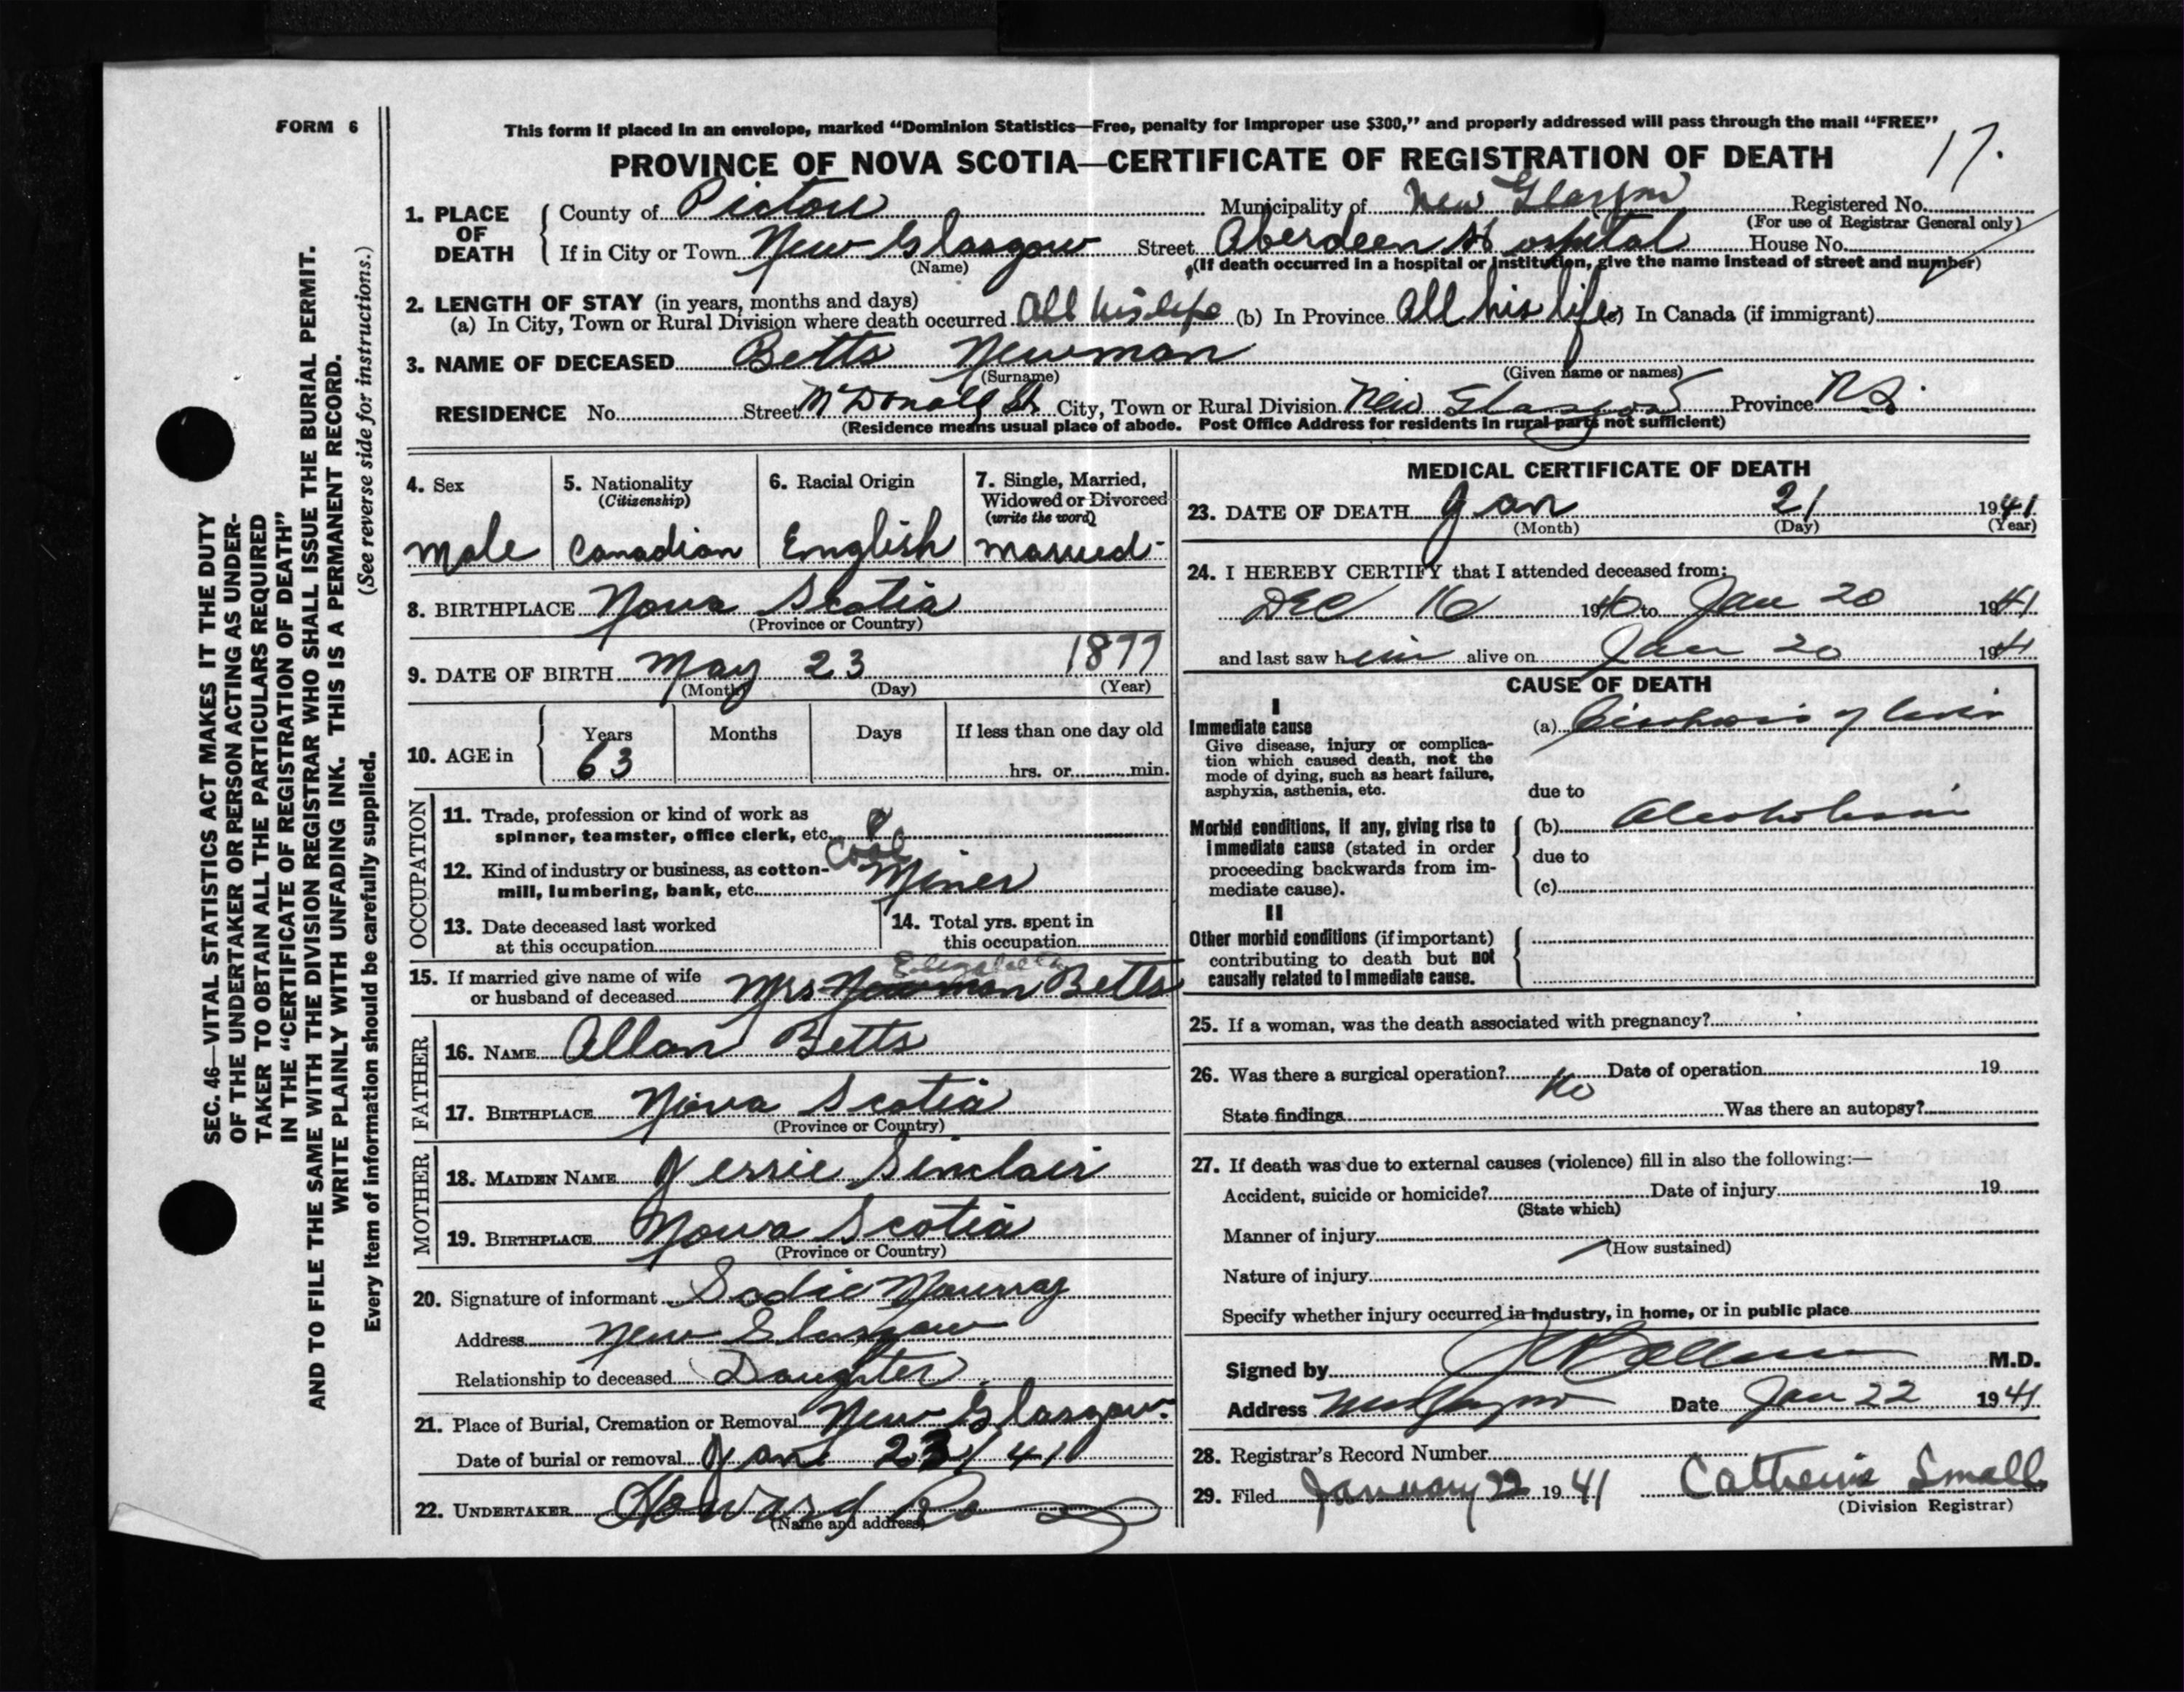 FORM 6
This form if placed in an envelope, marked “Dominion Statistics—Free, penalty for improper use $300,” and properly addressed will pass through the mail “FREE”
PROVINCE OF NOVA SCOTIA—CERTIFICATE OF REGISTRATION OF DEATH
17.
1. PLACE OF DEATH
County of Pictou Municipality of New Glasgow Registered No.
(For use of Registrar General only)
If in City or Town New Glasgow Street Aberdeen Hospital House No.
(Name) (If death occurred in a hospital or institution, give the name instead of street and number)
2. LENGTH OF STAY (in years, months and days)
(a) In City, Town or Rural Division where death occurred All his life (b) In Province All his life (c) In Canada (if immigrant)
3. NAME OF DECEASED Betts Newman
(Surname) (Given name or names)
RESIDENCE No. Street McDonald St. City, Town or Rural Division New Glasgow Province N.S.
(Residence means usual place of abode. Post Office Address for residents in rural parts not sufficient)
4. Sex
male
5. Nationality
(Citizenship)
Canadian
6. Racial Origin
English
7. Single, Married,
Widowed or Divorced
(write the word)
married
8. BIRTHPLACE Nova Scotia
(Province or Country)
9. DATE OF BIRTH May 23 1877
(Month) (Day) (Year)
10. AGE in
Years Months Days If less than one day old
63 hrs. or min.
OCCUPATION
11. Trade, profession or kind of work as
spinner, teamster, office clerk, etc.
Coal
12. Kind of industry or business, as cotton-
mill, lumbering, bank, etc. Miner
13. Date deceased last worked
at this occupation
14. Total yrs. spent in
this occupation
Elizabeth
15. If married give name of wife
or husband of deceased Mrs Newman Betts
FATHER
16. NAME Allan Betts
17. BIRTHPLACE Nova Scotia
(Province or Country)
MOTHER
18. MAIDEN NAME Jessie Sinclair
19. BIRTHPLACE Nova Scotia
(Province or Country)
20. Signature of informant Sadie Murray
Address New Glasgow
Relationship to deceased Daughter
21. Place of Burial, Cremation or Removal New Glasgow
Date of burial or removal Jan 23/41
22. UNDERTAKER Howard
(Name and address)
MEDICAL CERTIFICATE OF DEATH
23. DATE OF DEATH Jan 21 1941
(Month) (Day) (Year)
24. I HEREBY CERTIFY that I attended deceased from:
Dec 16 1940 to Jan 20 1941
and last saw him alive on Jan 20 1941
CAUSE OF DEATH
I
Immediate cause
Give disease, injury or complica-
tion which caused death, not the
mode of dying, such as heart failure,
asphyxia, asthenia, etc.
(a) Cirrhosis of liver
due to
Morbid conditions, if any, giving rise to
immediate cause (stated in order
proceeding backwards from im-
mediate cause).
(b) Alcoholism
due to
(c)
II
Other morbid conditions (if important)
contributing to death but not
causally related to immediate cause.
25. If a woman, was the death associated with pregnancy?
26. Was there a surgical operation? No Date of operation 19
State findings Was there an autopsy?
27. If death was due to external causes (violence) fill in also the following:—
Accident, suicide or homicide? Date of injury 19
(State which)
Manner of injury
(How sustained)
Nature of injury
Specify whether injury occurred in industry, in home, or in public place
Signed by M.D.
Address New Glasgow Date Jan 22 1941
28. Registrar's Record Number
29. Filed January 22 1941 Catherine Small
(Division Registrar)
SEC. 46—VITAL STATISTICS ACT MAKES IT THE DUTY
OF THE UNDERTAKER OR PERSON ACTING AS UNDER-
TAKER TO OBTAIN ALL THE PARTICULARS REQUIRED
IN THE “CERTIFICATE OF REGISTRATION OF DEATH”
AND TO FILE THE SAME WITH THE DIVISION REGISTRAR WHO SHALL ISSUE THE BURIAL PERMIT.
WRITE PLAINLY WITH UNFADING INK. THIS IS A PERMANENT RECORD.
Every item of information should be carefully supplied. (See reverse side for instructions.)